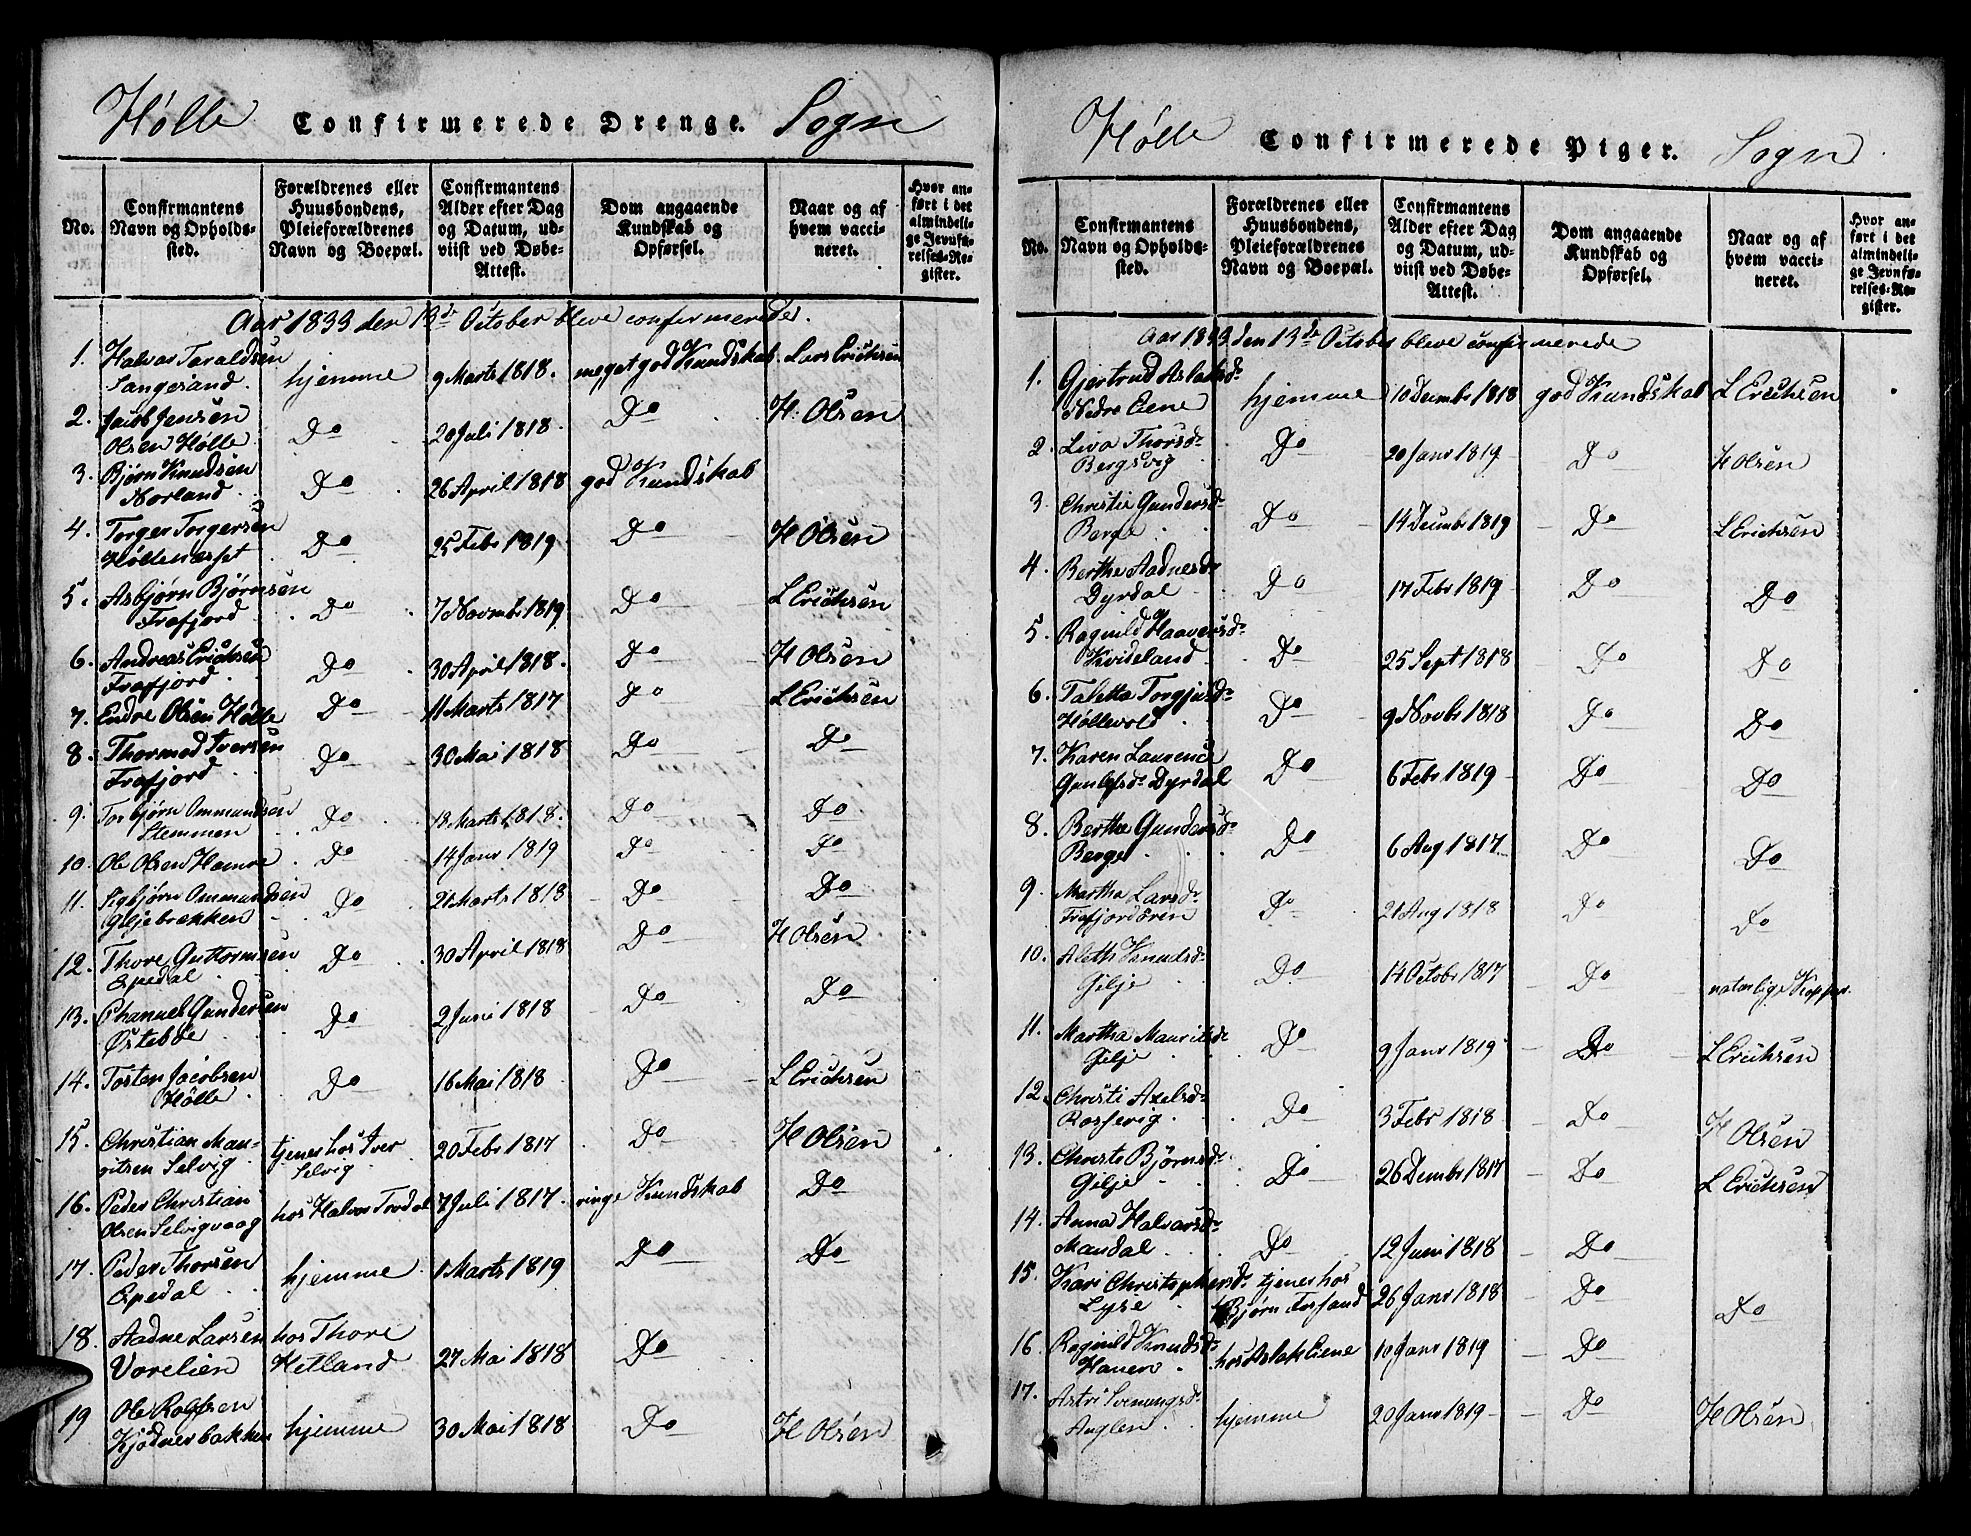 Hølle Confirmerede Drenge. Sogn
No.
Confirmantens Navn og Opholds-sted.
Forældrenes eller Huusbondens, Pleieforældrenes Navn og Boepæl.
Confirmantens Alder efter Dag og Datum, ud-viist ved Døbe-Attest.
Dom angaaende Kundskab og Opførsel.
Naar og af hvem vacci-neret.
Hvor an-ført i det almindeli-ge Jevnfø-relses-Re-gister.
Aar 1833 den 13de October bleve confirmerede.
1. Halvor Taraldsen hjemme 9 Marts 1818. meget god Kundskab. Lars Erichsen
Sangesand.
2. Jacob Jensen Do 20 Juli 1818. Do H. Olsen
Olsen Hølle
3. Bjørn Knudsen Do 26 April 1818 god Kundskab
Norland
4. Torger Torgersen Do 25 Febr 1819 Do H Olsen
Høllenæsset
5. Asbjørn Bjørnsen Do 7 Novembr 1819 Do L Erichsen
Frafjord
6. Andreas Erichsen Do 30 April 1818. Do H Olsen
Frafjord
7. Endre Olsen Hølle Do 11 Marts 1817 Do L Erichsen
8. Thormod Iversen Do 30 Mai 1818 Do Do
Frafjord
9. Torbjørn Ommundsen Do 18 Marts 1818. Do Do
Stemmen
10. Ole Olsen Hamre Do 14 Janr 1819 Do Do
11. Sigbjørn Ommundsen Do 21 Marts 1818 Do Do
Giljebrækken
12. Thore Guttormsen Do 30 April 1818 Do H Olsen
Espedal
13. Phanuel Gundersen Do 2 Juni 1818 Do Do
Østebøe
14. Tosten Jacobsen Do 16 Mai 1818 Do L Erichsen
Hølle
15. Christian Mau- tjener hos Iver 20 Febr 1817 Do H Olsen
ritsen Selvig Selvig
16. Peder Christian hos Halvor 7 Juli 1817. ringe Kundskab Do
Olsen Selvigvaag
17. Peder Thorsen hjemme 1 Marts 1819 Do Do
Espedal
18. Aadne Larsen hos Thore 27 Mai 1818 Do
Vorelien Hetland
19 Ole hjemme 30 Mai 1818 Do H Olsen
Kjødnesbakken
Hølle Confirmerede Piger. Sogn
No.
Confirmantens Navn og Opholds-sted.
Forældrenes eller Huusbondens, Pleieforældrenes Navn og Boepæl.
Confirmantens Alder efter Dag og Datum, ud-viist ved Døbe-Attest.
Dom angaaende Kundskab og Opførsel.
Naar og af hvem vacci-neret.
Hvor an-ført i det almindeli-ge Jevnfø-relses-Re-gister.
Aar 1833 den 13de October bleve confirmerede
1. Gjertrud Aslaksdr hjemme 10 Decembr 1818 god Kundskab L Erichsen
Nedre Eene
2. Liva Thorsdr Do 20 Janr 1819 Do H Olsen
Bergsvig
3. Christie Gundersdr Do 14 Decembr 1819 Do L Erichsen
Berge
4. Berthe Aadnesdr Do 17 Febr 1819 Do Do
Dyrdal
5. Ragnild Haaversdr Do 25 Sept 1818 Do Do
Kvideland
6. Taletta Torgjusdr Do 9 Novbr 1818 Do Do
Høllevold
7. Karen Laurence Do 6 Febr 1819 Do Do
Gunlefsdr Dyrdal
8. Berthe Gundersdr Do 6 Aug 1817. Do Do
Berge
9. Martha Larsdr Do 21 Aug 1818 Do Do
Frafjordøren
10. Aleth Knudsdr Do 14 Octobr 1817 Do naturlige Kopper
Gilje
11. Martha Mauritsdr Do 9 Janr 1819 Do L Erichsen
Gilje
12. Christi Axelsdr Do 3 Febr 1818 Do H Olsen
Rossevig
13. Christi Bjørnsdr Do 26 Decembr 1817 Do L Erichsen
Gilje
14. Anna Halvorsdr Do 12 Juni 1818 Do
Mandal
15. Kari Christophersdr tjener hos 26 Janr 1818 Do Do
Lyse Bjørn Forsand
16. Ragnild Knudsdr hos Aslak Eiene 10 Janr 1819 Do
Hauen
17. Astri Svenungsdr hjemme 20 Janr 1819 Do H Olsen
Auglen